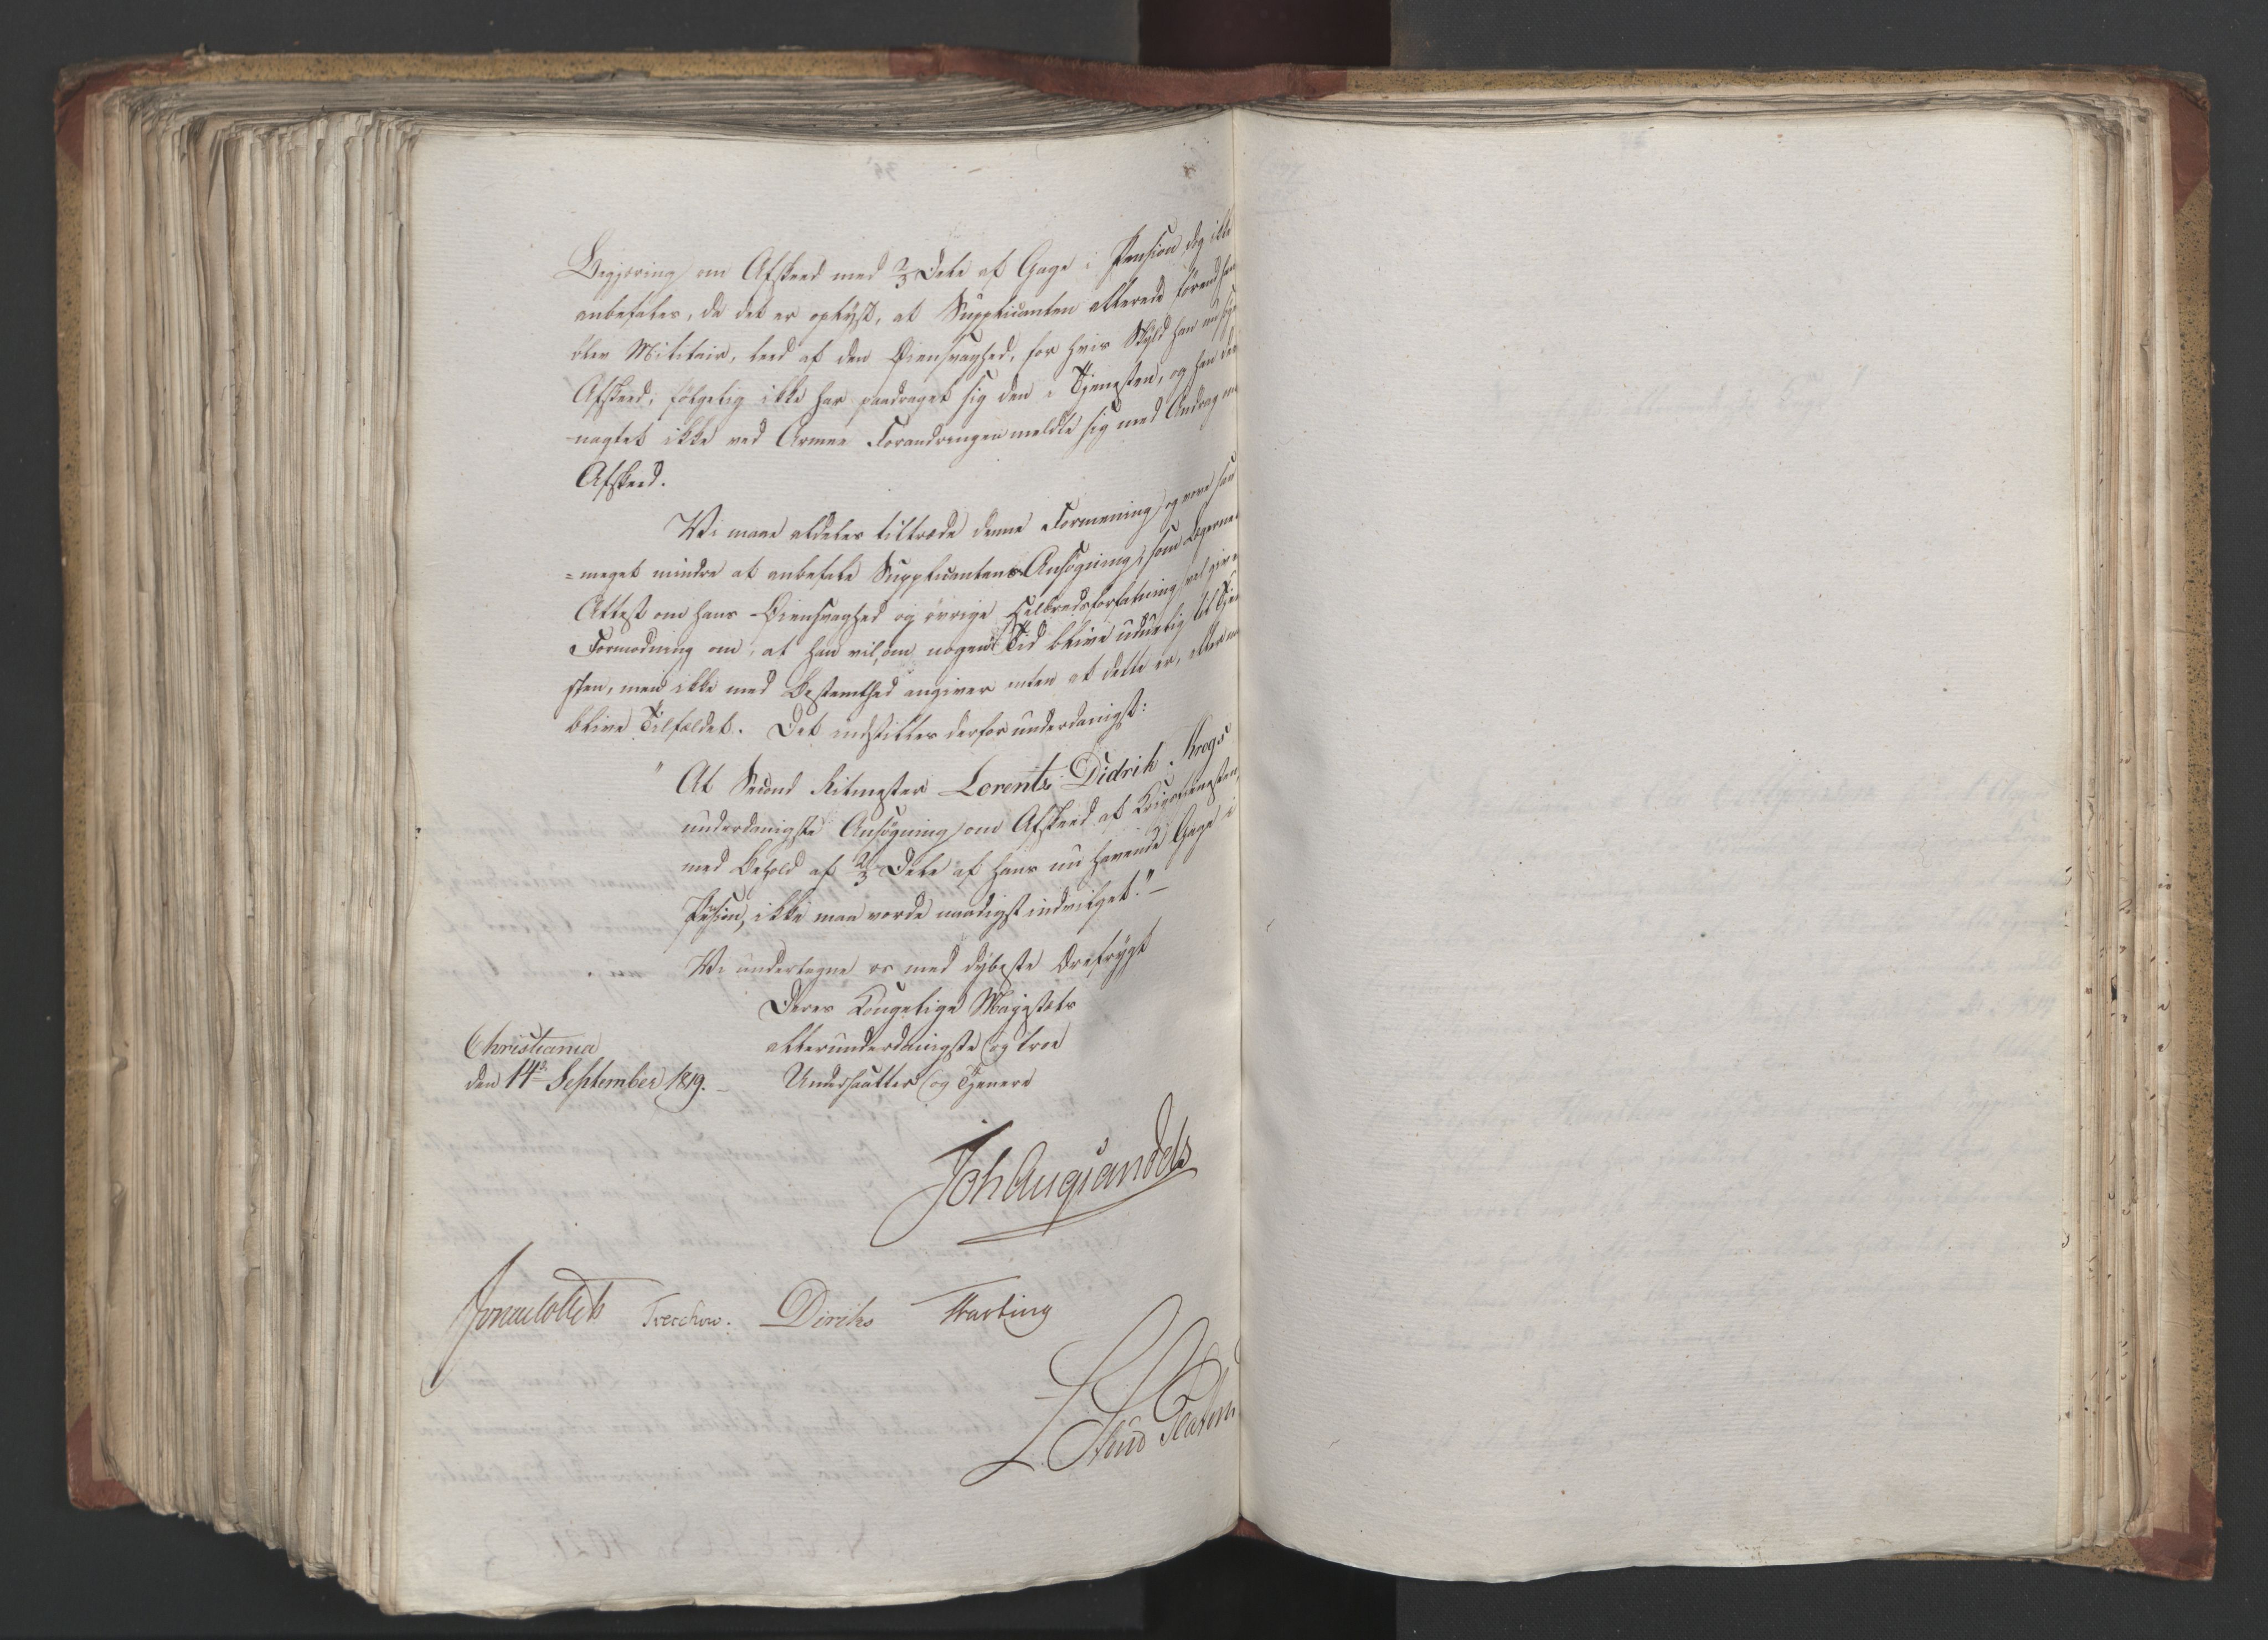 Begjæring om Afskeed med 2/3 Dele af Gage i Pension dog ikke
anbefales, da det er oplyst, at Supplicanten allerede förend han
blev Militair, leed af den Øiensvaghed, for hvis Skyld han nu söger
Afskeed, fölgelig ikke har paadraget sig den i Tjenesten, og han des
-uagtet ikke ved Armee Forandringen meldte sig med Andrag om
Afskeed.
Vi maae aldeles tiltræde denne Formening og more saa
=meget mindre at anbefale Supplicantens Ansögning, som Lægernes
Attest om hans Øiensvaghed og övrige Helbredsforfatning vel giver
Formodning om, at han vil, om nogen Tid blive uduelig til Tjene
sten, men ikke med Bestemthed angiver enten at dette er, eller
blive Tilfældet. Det indstilles derfor underdanigst:
" At Second Ritmester Lorentz Didrik Krogs
underdanigste Ansögning om Afskeed af Krigstienesten,
med Behold af 2/3 Dele af hans nu havende Gage i
Pension, ikke maa vorde naadigst indvilget." —
Vi undertegne os med dybeste Ærefrygt
Deres Kongelige Majestæts
allerunderdanigste og troe
Undersaatter og Tjenere
Christiania
den 14de September 1819. —
Joh Aug Sandels
Jonas Collett Treschow. Diriks Fasting
L. Stud Platou